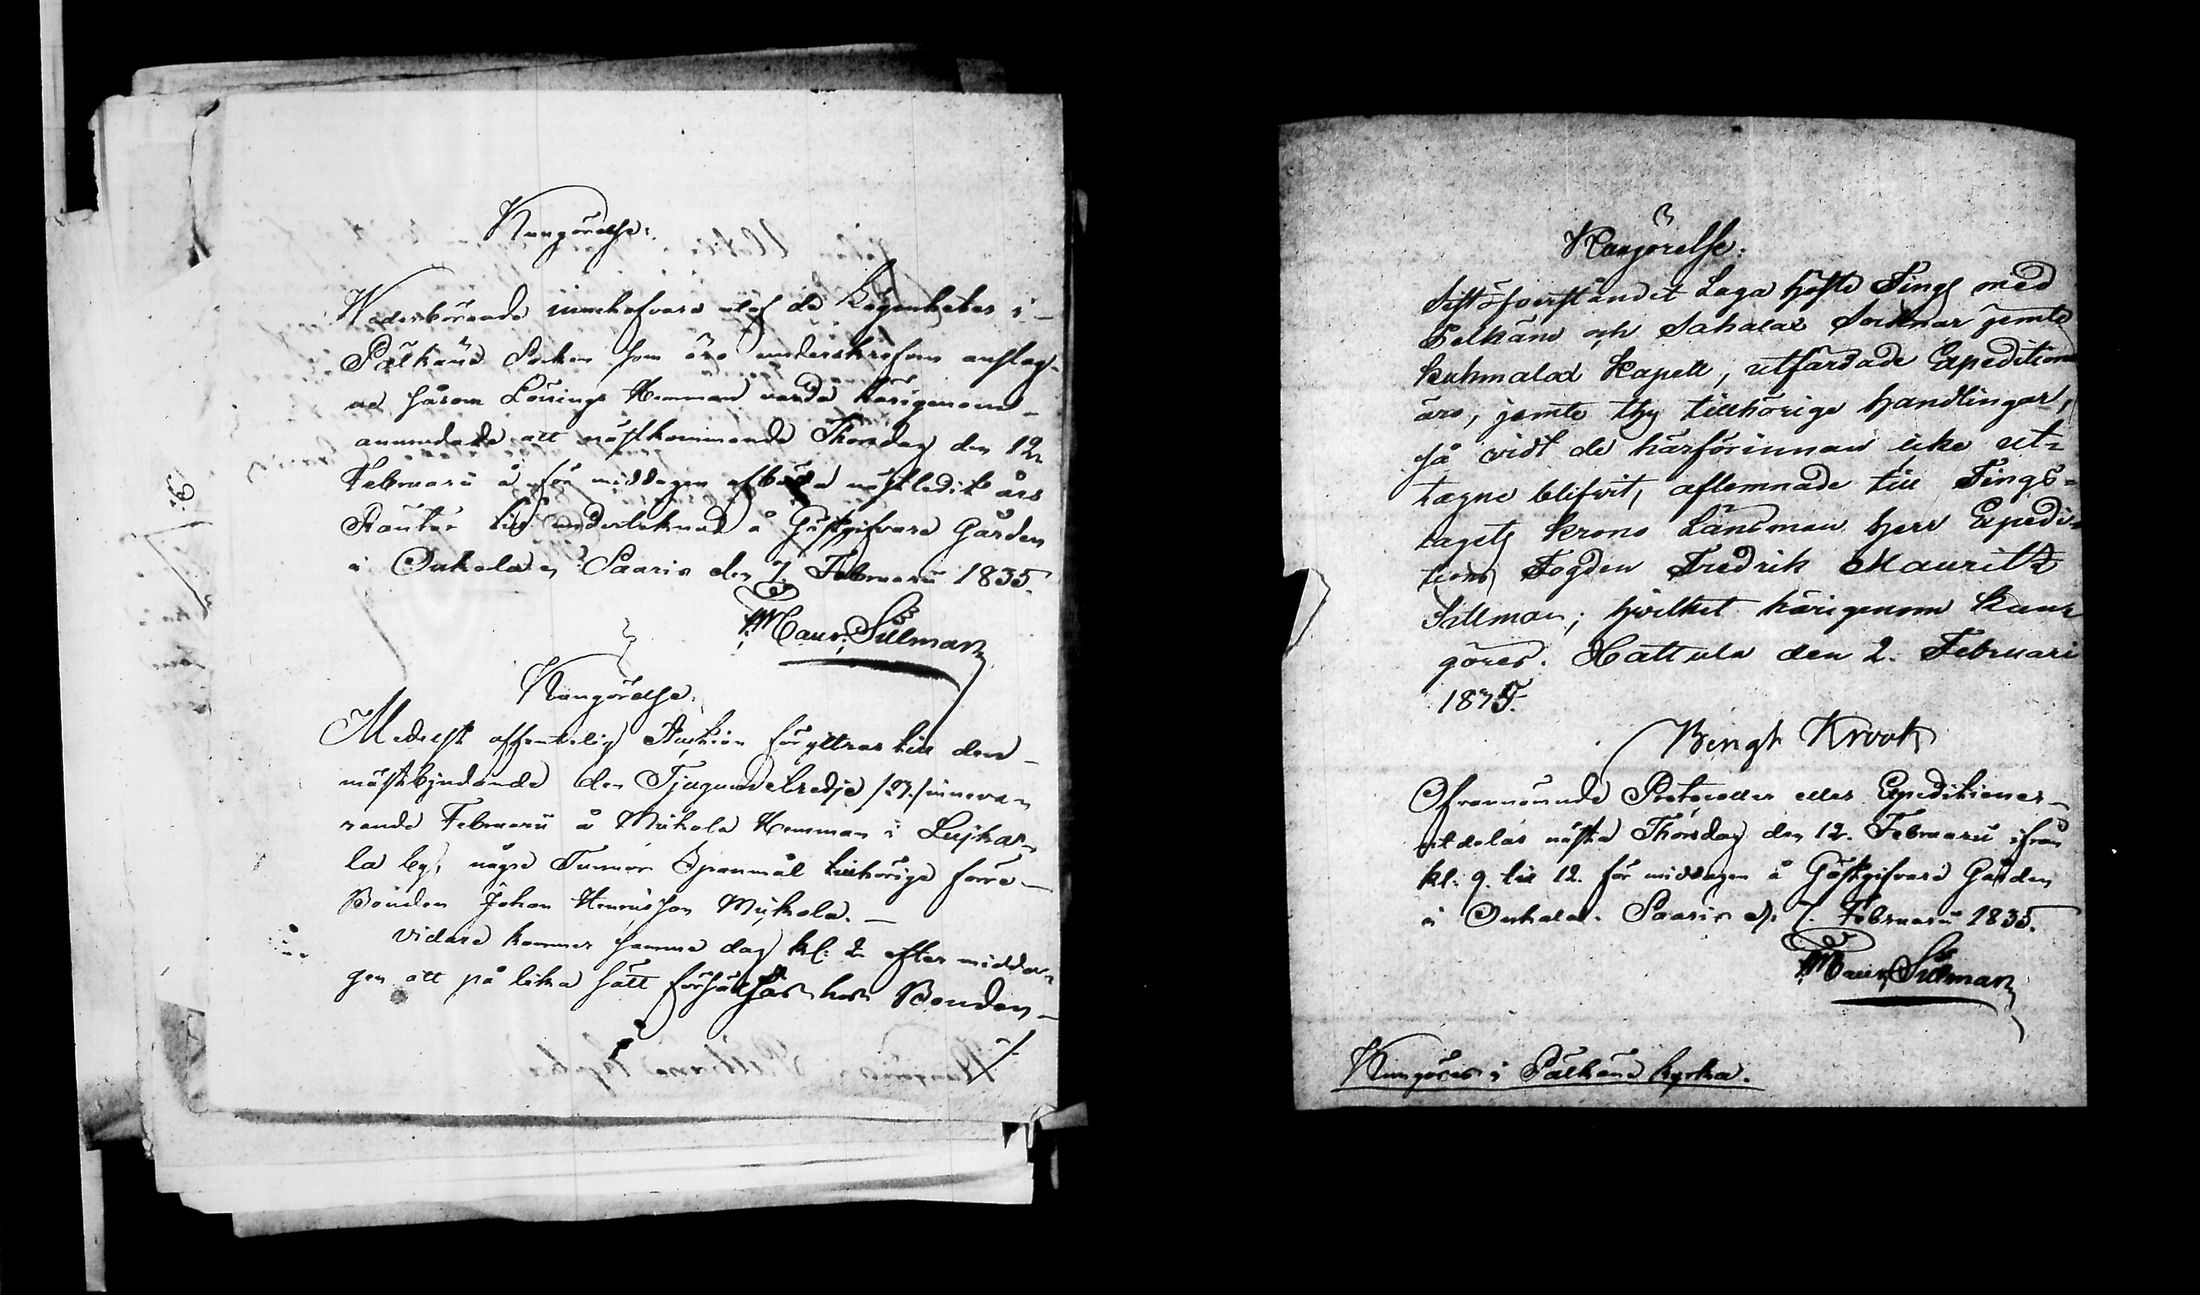 Kungörelse:
Wederbörande innehafvare utaf de Lägenheter i
Pälkäne Socken som äro underskrefvne anslag-
ne såsom Lönings Hemman varda härigenom
anmodade att nästkommande Thorsdag den 12
Februarii å för middagen afbörda nästledit års
Räntor till underteknad å Gästgifvare Gården
i Onkkala. Saaris den 7. Februarii 1835.
Maur. Sillman
Kungörelse.
Medelst offentelig Auktion föryttras till den
mästbjudande den Tjugundetredje /23./ inneva-
rande Februarii å Mickola Hemman i Luika-
la by, några Tunnor Spanmål tillhörige förre
Bonden Johan Henricsson Mickola.
Vidare kommer samma dag kl: 2 efter midda-
gen att på lika sätt försäljas hos Bonden
./.
Kungörelse:
Sistöfverståndet Laga Höste Tings med
Pelkäne och Sahalax Socknar jemte
Kuhmalax Kapell, utfärdade Expeditioner
äro, jemte thy tillhörige handlingar,
så vidt de härförinnan icke ut-
tagne blifvit, aflemnade till Tings-
lagets Krono Länsman Herr Expedi-
tions Fogden Fredrik Mauritz
Sillman; hvilket härigenom kun-
göres. Hattula den 2. Februari
1835.
Bengt Krook
Ofvannämnde Protocoller eller Expeditioner
utdelas nästa Thorsdag den 12. Februarii ifrån
kl. 9. till 12. för middagen å Gästgifvare Gården
i Onkkala. Saaris d. 7. Februarii 1835.
Maur. Sillman
Kungöres i Pälkäne kyrka.